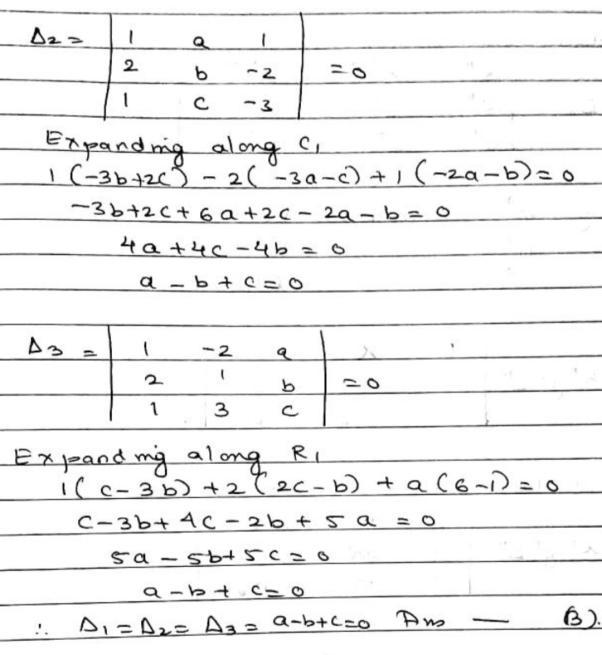 Δ2 = | 1 a 1 |
| 2 b -2 | = 0
| 1 c -3 |
Expanding along C1
1 (-3b+2c) - 2( -3a-c) + 1 (-2a-b) = 0
-3b+2c+6a+2c- 2a-b = 0
4a+4c-4b = 0
a - b + c = 0
Δ3 = | 1 -2 a |
| 2 1 b | = 0
| 1 3 c |
Expanding along R1
1( c-3b) +2(2c-b) + a(6-1) = 0
c-3b+4c-2b+5a = 0
5a-5b+5c = 0
a-b+c=0
∴ Δ1 = Δ2 = Δ3 = a-b+c=0 Ans — (B).